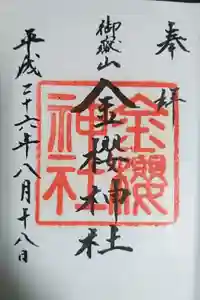 奉拝
御嶽山
金櫻神社
平成二十六年八月十八日
金櫻
神社